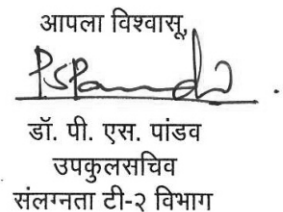 आपला विश्वासू,
डॉ. पी. एस. पांडव
उपकुलसचिव
संलग्नता टी-२ विभाग